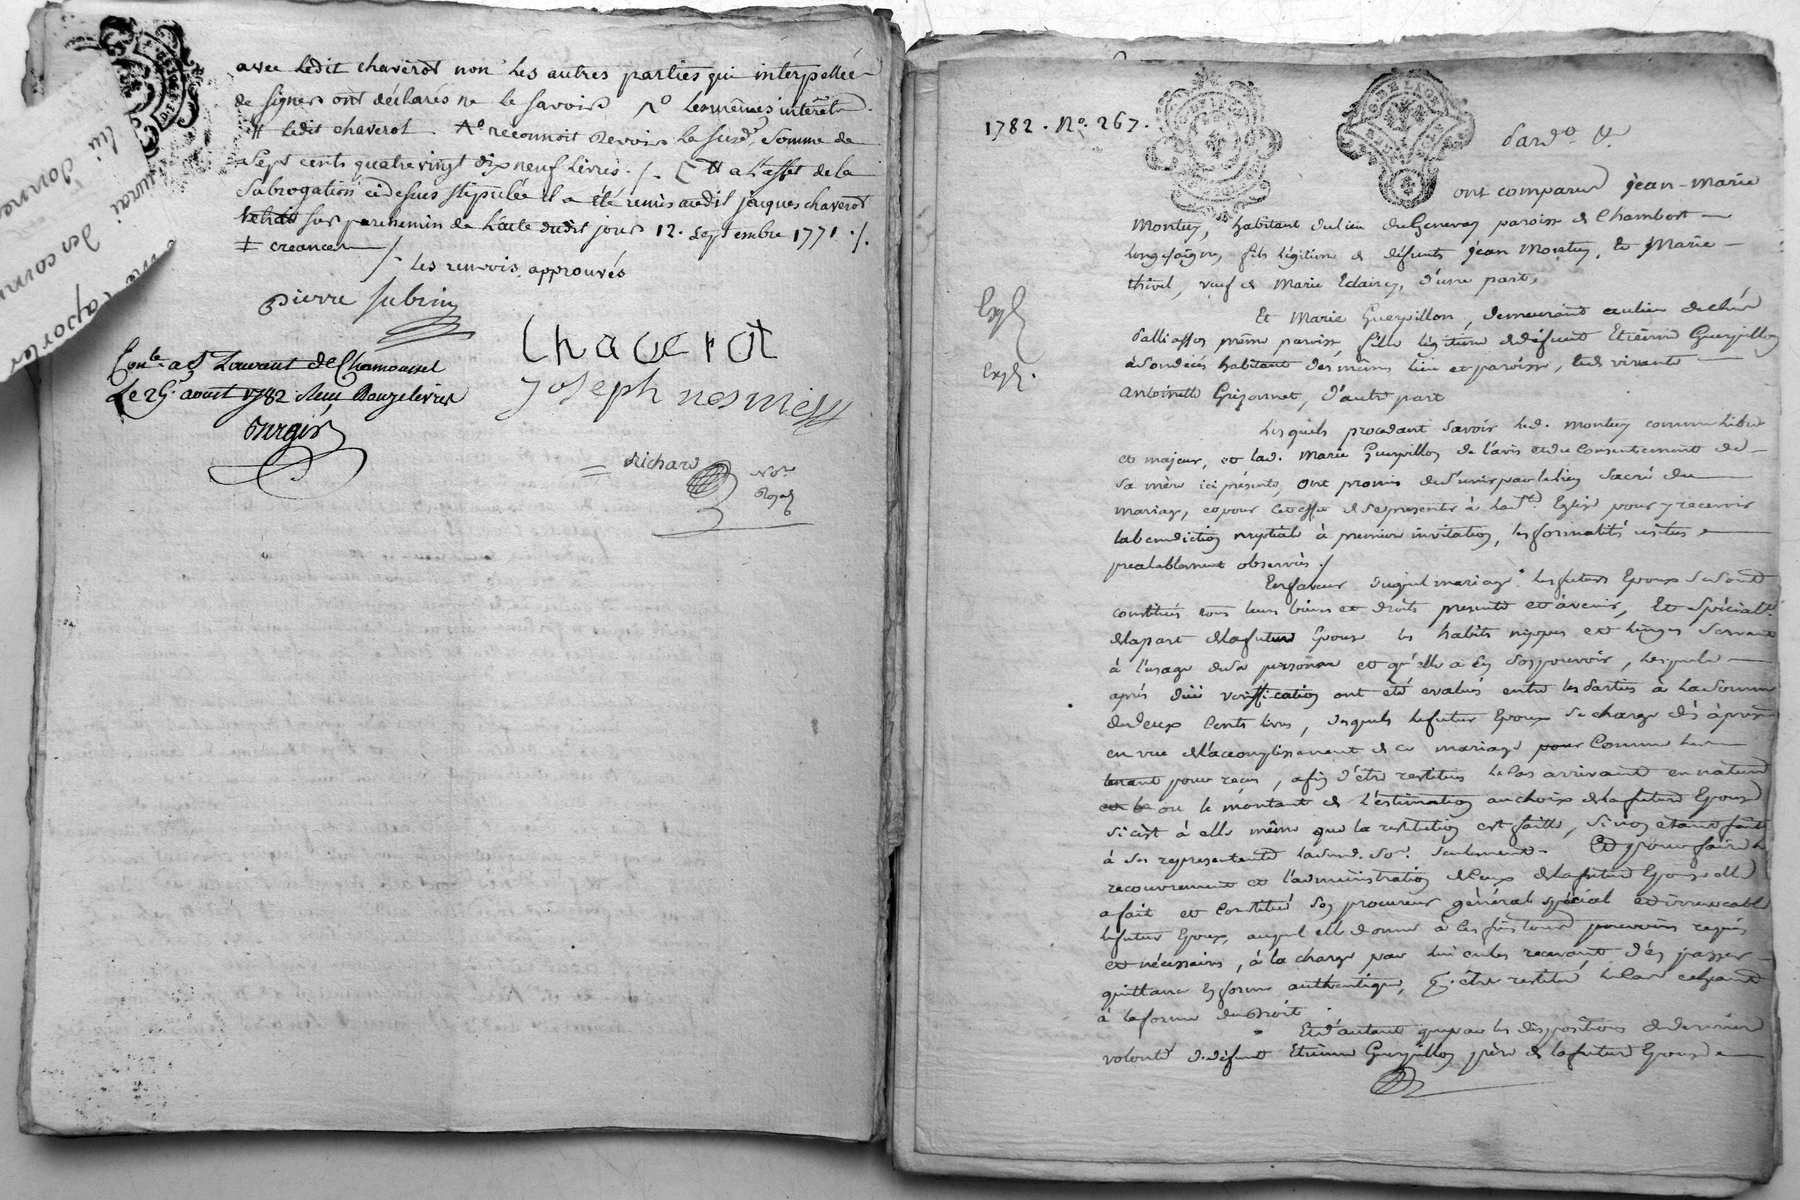 avec ledit chaverot non les autres parties qui interpellée
de signer ont déclarés ne le savoir
ledit chaverot reconnoit devoir la susd. Somme de
Sept cents quatre vingt dix neuf Livres ./. a l'effet de la
Subrogation cidessus stipulée il a été remis audit jacques chaverot
sur parchemin de l'acte dudit jour 12. Septembre 1771 ./.
‡ creance /
les renvois approuvés
pierre Subrin
Chaverot
Conle. a St. Laurant de Chamousset
Le 29. aoust 1782 Reçu Douze livres
joseph nesme
Richard
Nore.
Royal
1782. No. 267.
Pardt.
ont comparu jean-marie
Montuy, habitant du lieu du Genevay paroisse de Chambost
longesaigne, fils légitime de defunts jean Montuy, et Marie
thivel, veuf de Marie Eclairey, d'une part,
Et Marie Guerpillon, demeurant au lieu de chez
même paroisse fille légitime de défunt Etienne Guerpillon
à son décès habitant des mêmes lieu et paroisse, et de vivante
antoinette Grizonnet, d'autre part
Lesquels procedant savoir led. montuy comme libre
et majeur, et lad. Marie Guerpillon de l'avis et du Consentement de
Sa mère ici présente, ont promis de s'unir par le lien sacré du
mariage, et pour cet effet de se presenter à lad. te. Eglise pour y recevoir
la benediction nuptiale à premiere invitation, les formalités usitées
prealablement observées ./
En faveur duquel mariage les futurs Epoux se sont
constitués tous leurs biens et droits presents et àvenir, Et spécialt.
de la part de la future Epouse les habits nippes et linges servant
à l'usage de sa personne et qu'elle a en son pouvoir, lesquels
après düe vérification ont été evalués entre les parties à la somme
de deux Cents livres, desquels le futur Epoux se charge dès àprésent
en vue de l'accomplissement de ce mariage pour Comme les
tenant pour reçus, afin d'être restitués le cas arrivant en nature
et le ou le montant de l'estimation au choix de la future Epouse
si c'est à elle même que la restitution est faitte, sinon etant faite
à ses representants lad. so. seulement. Et pour faire le
recouvrement et l'administration de ceux de la future Epouse elle
a fait et Constitué son procureur général spécial et irrevocable
le futur Epoux, auquel elle donne à ces fins tous pouvoirs requis
et nécessaires, à la charge par lui en les recevant d'en passer
quittance en forme authentique, pr. être restitué le cas echeant
à la forme du Droit.
Et d'autant que par les dispositions de derniere
volonté dudéfunt Etienne Guerpillon père de la future Epouse